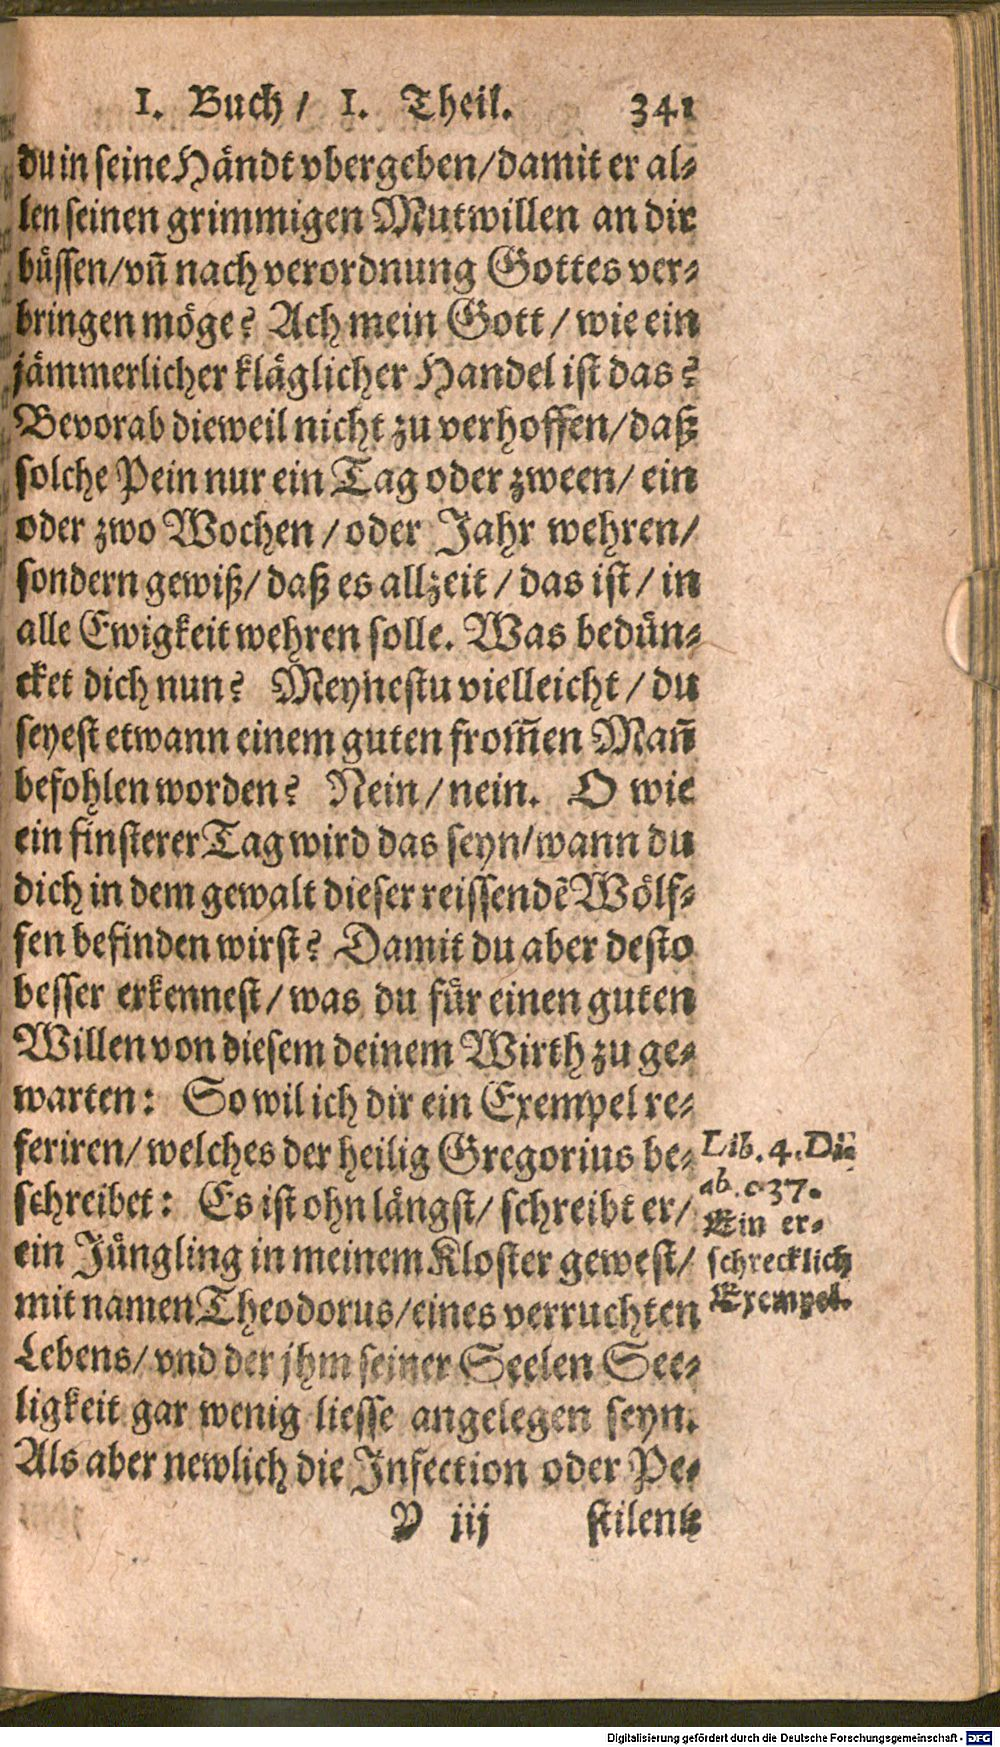 1. Buch / 1. Theil. 341
du in seine Händt vbergeben/damit er al⸗
len seinen grimmigen Mutwillen an dir
büssen/vn̄ nach verordnung Gottes ver⸗
bringen möge? Ach mein Gott / wie ein
jämmerlicher kläglicher Handel ist das?
Bevorab dieweil nicht zu verhoffen/daß
solche Pein nur ein Tag oder zween/ ein
oder zwo Wochen / oder Jahr wehren/
sondern gewiß/ daß es allzeit / das ist / in
alle Ewigkeit wehren solle. Was bedün⸗
cket dich nun? Meynestu vielleicht / du
seyest etwann einem guten from̄en Man̄
befohlen worden? Nein / nein. O wie
ein finsterer Tag wird das seyn/wann du
dich in dem gewalt dieser reissendē Wölf⸗
fen befinden wirst? Damit du aber desto
besser erkennest / was du für einen guten
Willen von diesem deinem Wirth zu ge⸗
warten: So wil ich dir ein Exempel re⸗
feriren/ welches der heilig Gregorius be⸗
schreibet: Es ist ohn längst/ schreibt er/
ein Jüngling in meinem Kloster gewest/
mit namen Theodorus/eines verruchten
Lebens/ vnd der jhm seiner Seelen See⸗
ligkeit gar wenig liesse angelegen seyn.
Als aber newlich die Infection oder Pe⸗
Y iij stilentz
Lib. 4. Di⸗
ab. c 37.
Ein er⸗
schrecklich
Exempel.
Digitalisierung gefördert durch die Deutsche Forschungsgemeinschaft - DFG